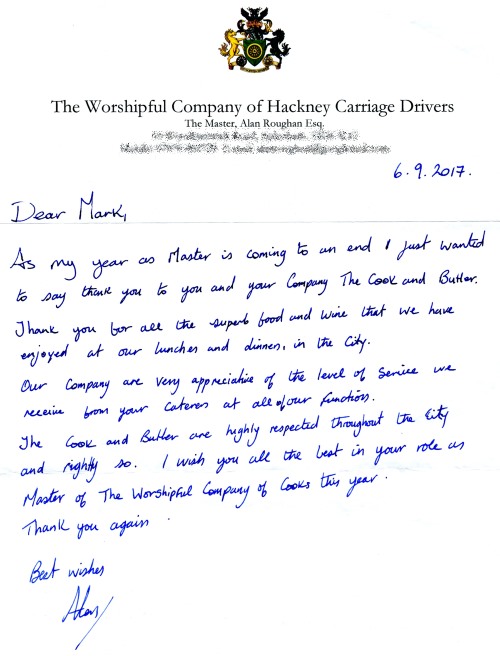 The Worshipful Company of Hackney Carriage Drivers
The Master, Alan Roughan Esq.
6.9.2017.
Dear Mark,
As my year as Master is coming to an end I just wanted
to say thank you to you and your Company The Cook and Butler.
Thank you for all the superb food and wine that we have
enjoyed at our lunches and dinners, in the City.
Our Company are very appreciative of the level of service we
receive from your caterers at all of our functions.
The Cook and Butler are highly respected throughout the City
and rightly so. I wish you all the best in your role as
Master of The Worshipful Company of Cooks this year.
Thank you again.
Best wishes
Alan